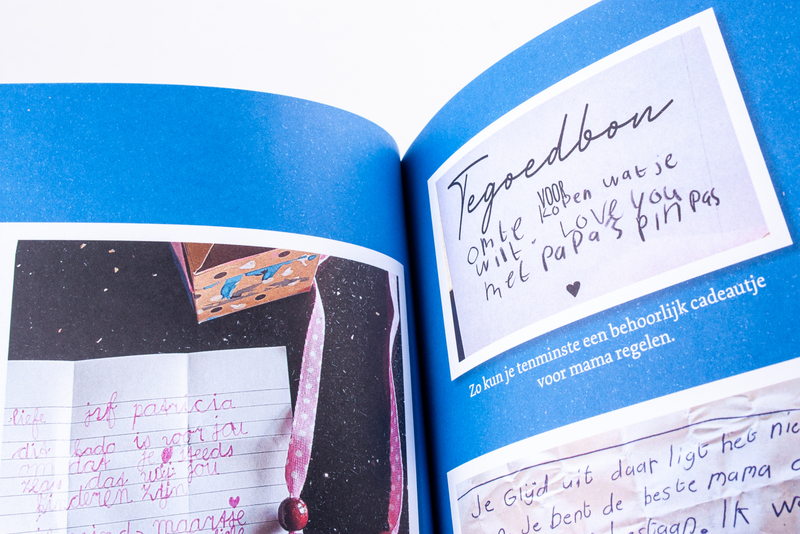 liefe juf patricia
dit kado is voor jou
om dat je steeds
zegt das wij jou
kinderen zijn
maartje
Tegoedbon
VOOR
omte kopen wat je
wilt. LOVE you
met papa's pinpas
Zo kun je tenminste een behoorlijk cadeautje
voor mama regelen.
Je Glijd uit daar ligt het nie
Je bent de beste mama
bestaan. IK